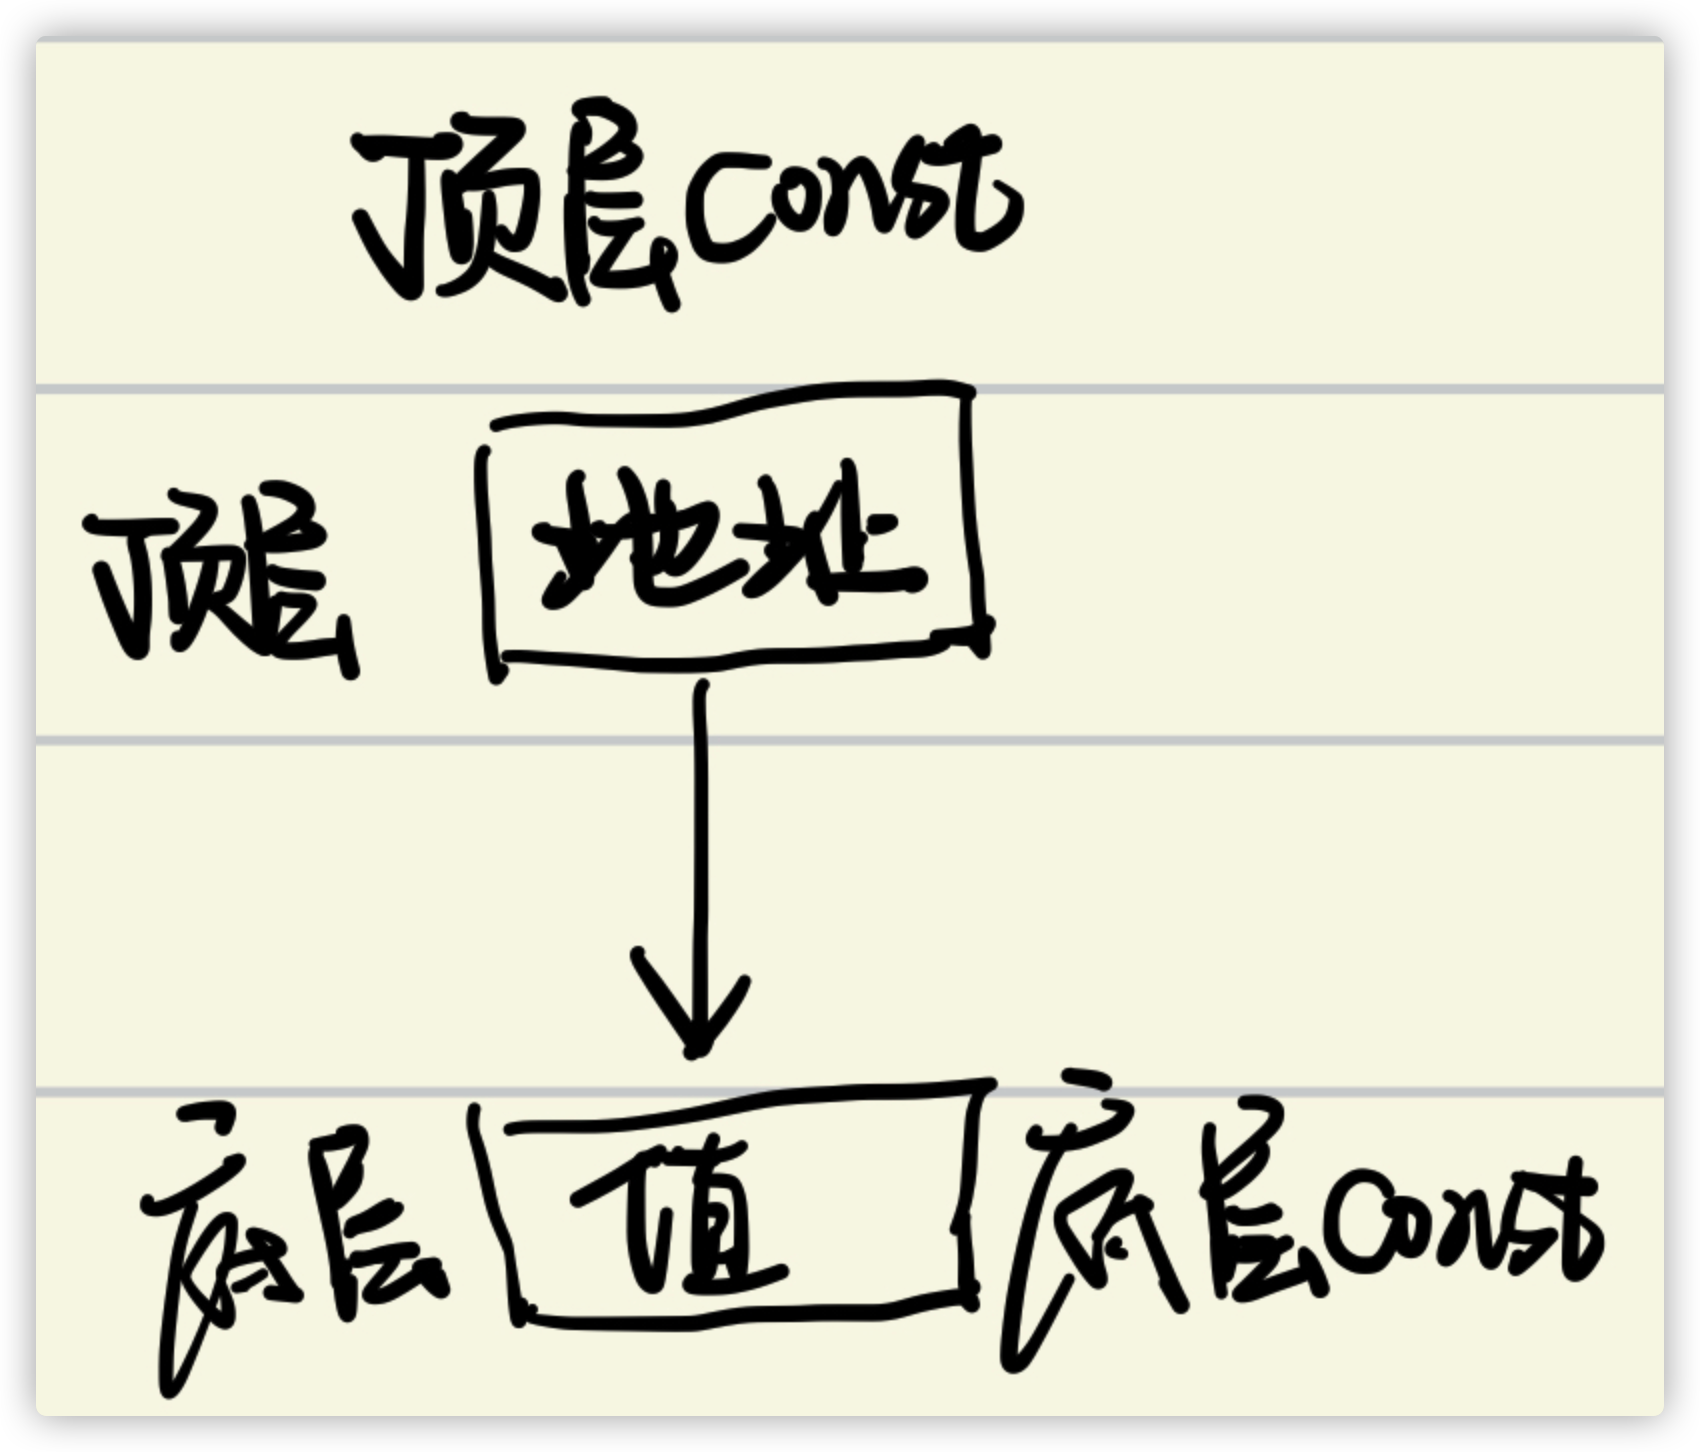 顶层const
顶层 地址
底层 值 底层const